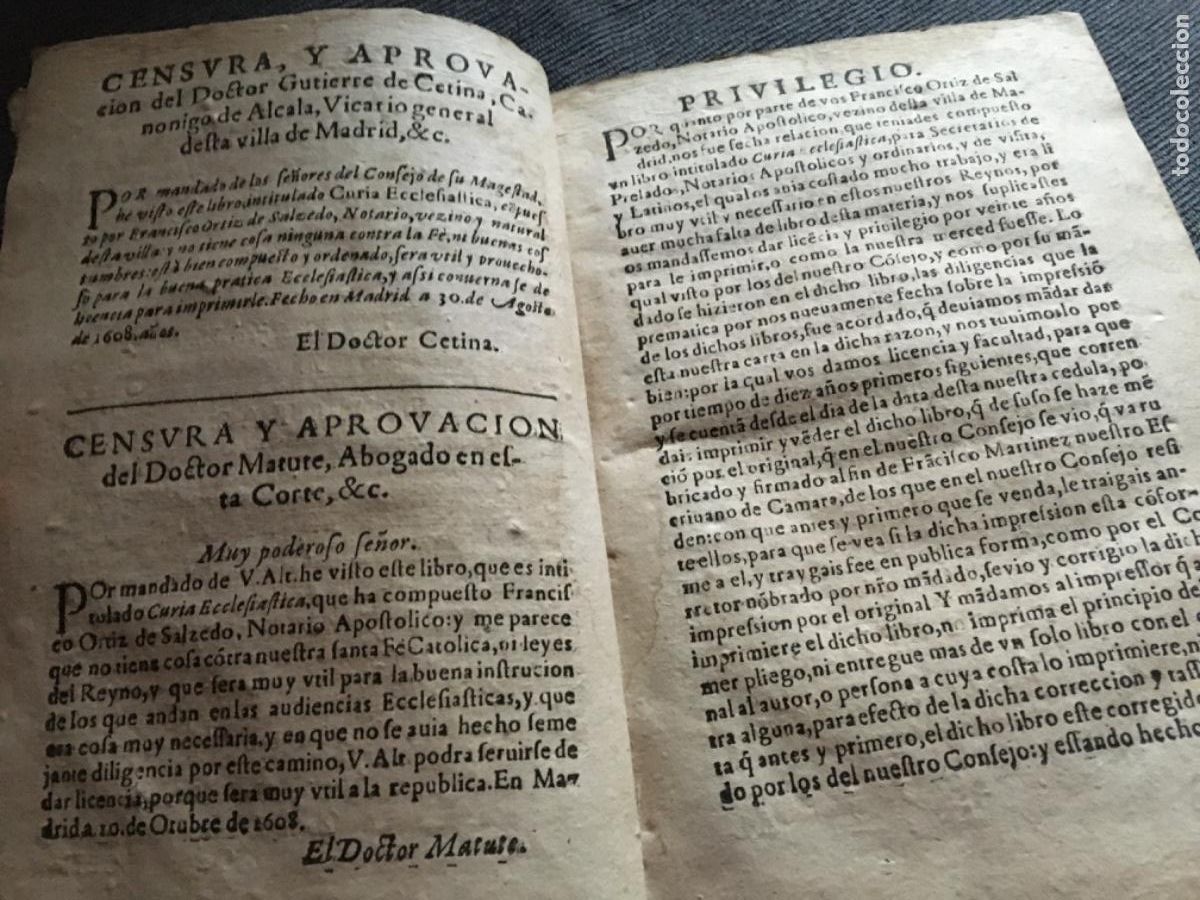 CENSVRA, Y APROVA-
cion del Doctor Gutierre de Cetina, Ca-
nonigo de Alcala, Vicario general
desta villa de Madrid, &c.
POR mandado de los señores del Consejo de su Magestad,
he visto este libro, intitulado Curia Ecclesiastica, cōpues
to por Francisco Ortiz de Salzedo, Notario, vezino y natural
desta villa: y no tiene cosa ninguna contra la Fè, ni buenas cos
tumbres: està bien compuesto y ordenado, sera vtil y prouecho-
so para la buena pratica Ecclesiastica, y assi conuerna se de
licencia para imprimirle. Fecho en Madrid a 30. de Agosto
de 1608. años.
El Doctor Cetina.
CENSVRA Y APROVACION
del Doctor Matute, Abogado en es-
ta Corte, &c.
Muy poderoso señor.
POr mandado de V. Alt. he visto este libro, que es inti
tulado Curia Ecclesiastica, que ha compuesto Francis
co Ortiz de Salzedo, Notario Apostolico: y me parece
que no tiene cosa cōtra nuestra santa Fè Catolica, ni leyes
del Reyno, y que sera muy vtil para la buena instrucion
de los que andan en las audiencias Ecclesiasticas, y que
era cosa muy necessaria, y en que no se auia hecho seme
jante diligencia por este camino, V. Alt. podra seruirse de
dar licencia, porque sera muy vtil a la republica. En Ma-
drid a 10. de Otubre de 1608.
El Doctor Matute.
PRIVILEGIO.
POR quanto por parte de vos Francisco Ortiz de Sal
zedo, Notario Apostolico, vezino desta villa de Ma-
drid, nos fue fecha relacion, que teniades compuesto
vn libro intitulado Curia Ecclesiastica, para Secretarios de
Prelados, Notarios Apostolicos y ordinarios, y de visita,
y Latinos, el qual os auia costado mucho trabajo, y era li
bro muy vtil y necessario en estos nuestros Reynos, por
auer mucha falta de libro desta materia, y nos suplicastes
os mandassemos dar licēcia y priuilegio por veinte años
para le imprimir, o como la nuestra merced fuesse. Lo
qual visto por los del nuestro Cōsejo, y como por su mā-
dado se hizieron en el dicho libro, las diligencias que la
prematica por nos nueuamente fecha sobre la impressiō
de los dichos libros, fue acordado, q̄ deuiamos mādar dar
esta nuestra carta en la dicha razon, y nos tuuimoslo por
bien: por la qual vos damos licencia y facultad, para que
por tiempo de diez años primeros siguientes, que corren
y se cuentā desde el dia de la data desta nuestra cedula, po
dais imprimir y vēder el dicho libro, q̄ de suso se haze mē
ció por el original, q̄ en el nuestro Consejo se vio, q̄ va ru
bricado y firmado al fin de Frācisco Martinez nuestro Es
criuano de Camara, de los que en el nuestro Consejo resi
den: con que antes y primero que se venda, le traigais an-
te ellos, para que se vea si la dicha impression esta cōfor-
me a el, y traygais fee en publica forma, como por el Co
rretor nōbrado por nr̄o mādado, se vio y corrigio la dich
impression por el original Y mādamos al impressor q̄ a
imprimiere el dicho libro, no imprima el principio de
mer pliego, ni entregue mas de vn solo libro con el o
nal al autor, o persona a cuya costa lo imprimiere, n
tra alguna, para efecto de la dicha correccion y tass
ta q̄ antes y primero, el dicho libro este corregid
do por los del nuestro Consejo: y estando hecho
todocoleccion